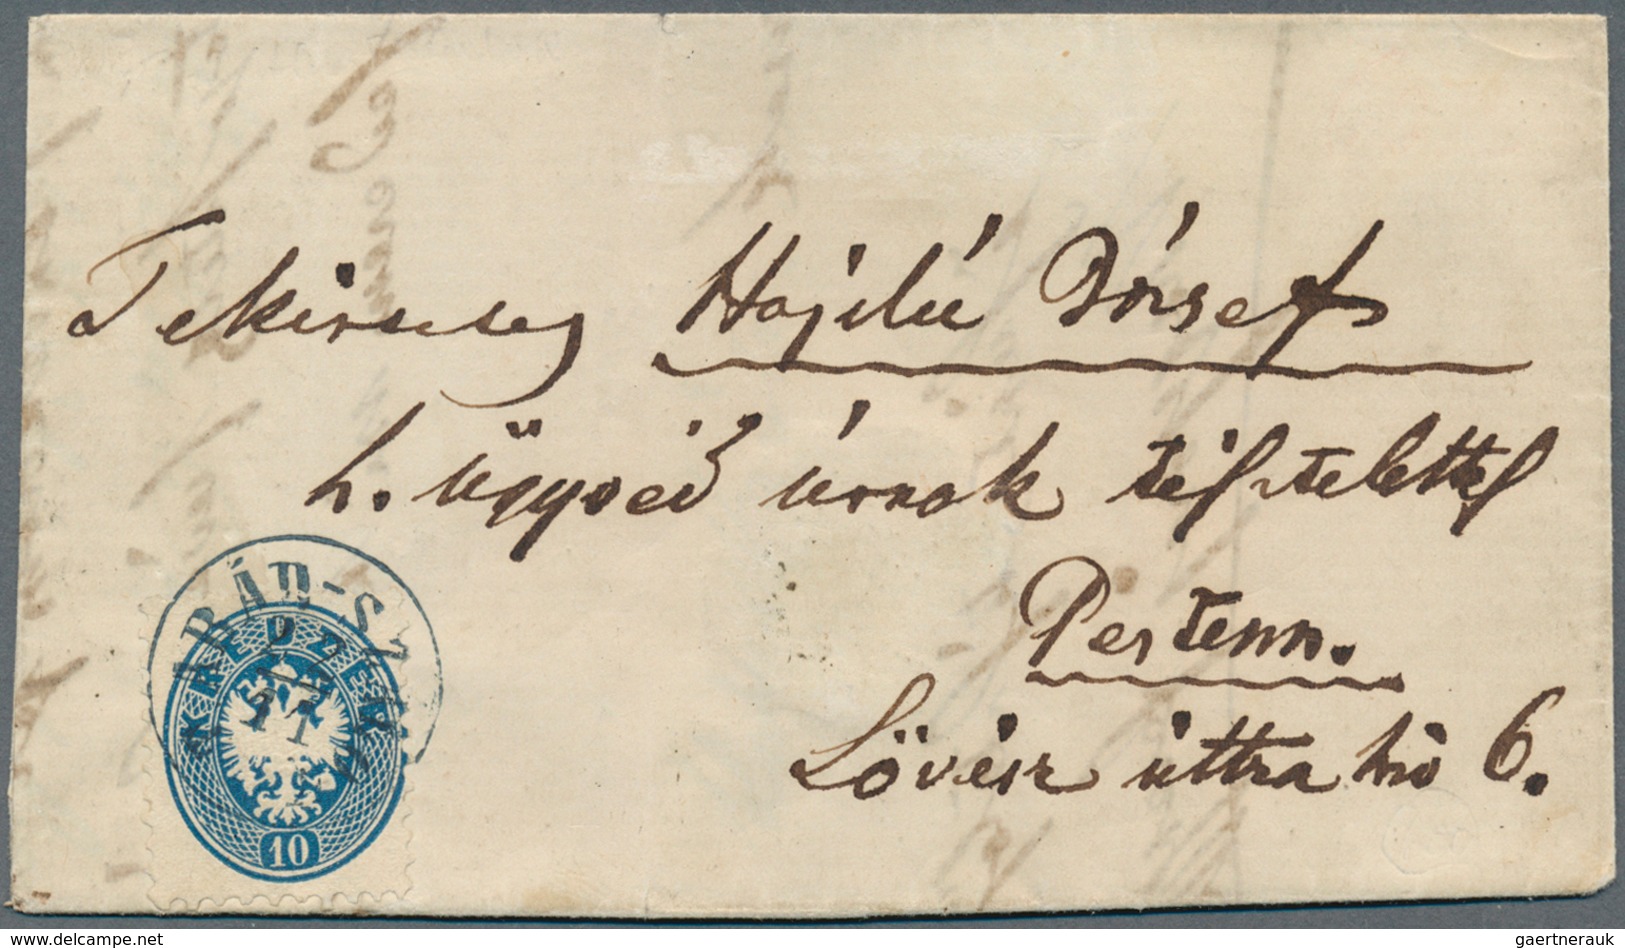 Tekintetes Hajdú József
h. ügyvéd úrnak tisztelettel
Pesten.
Lövész uttza 6.
ARAD-SZ
KREUZER
11
10
delcampe.net
gaertnerauk